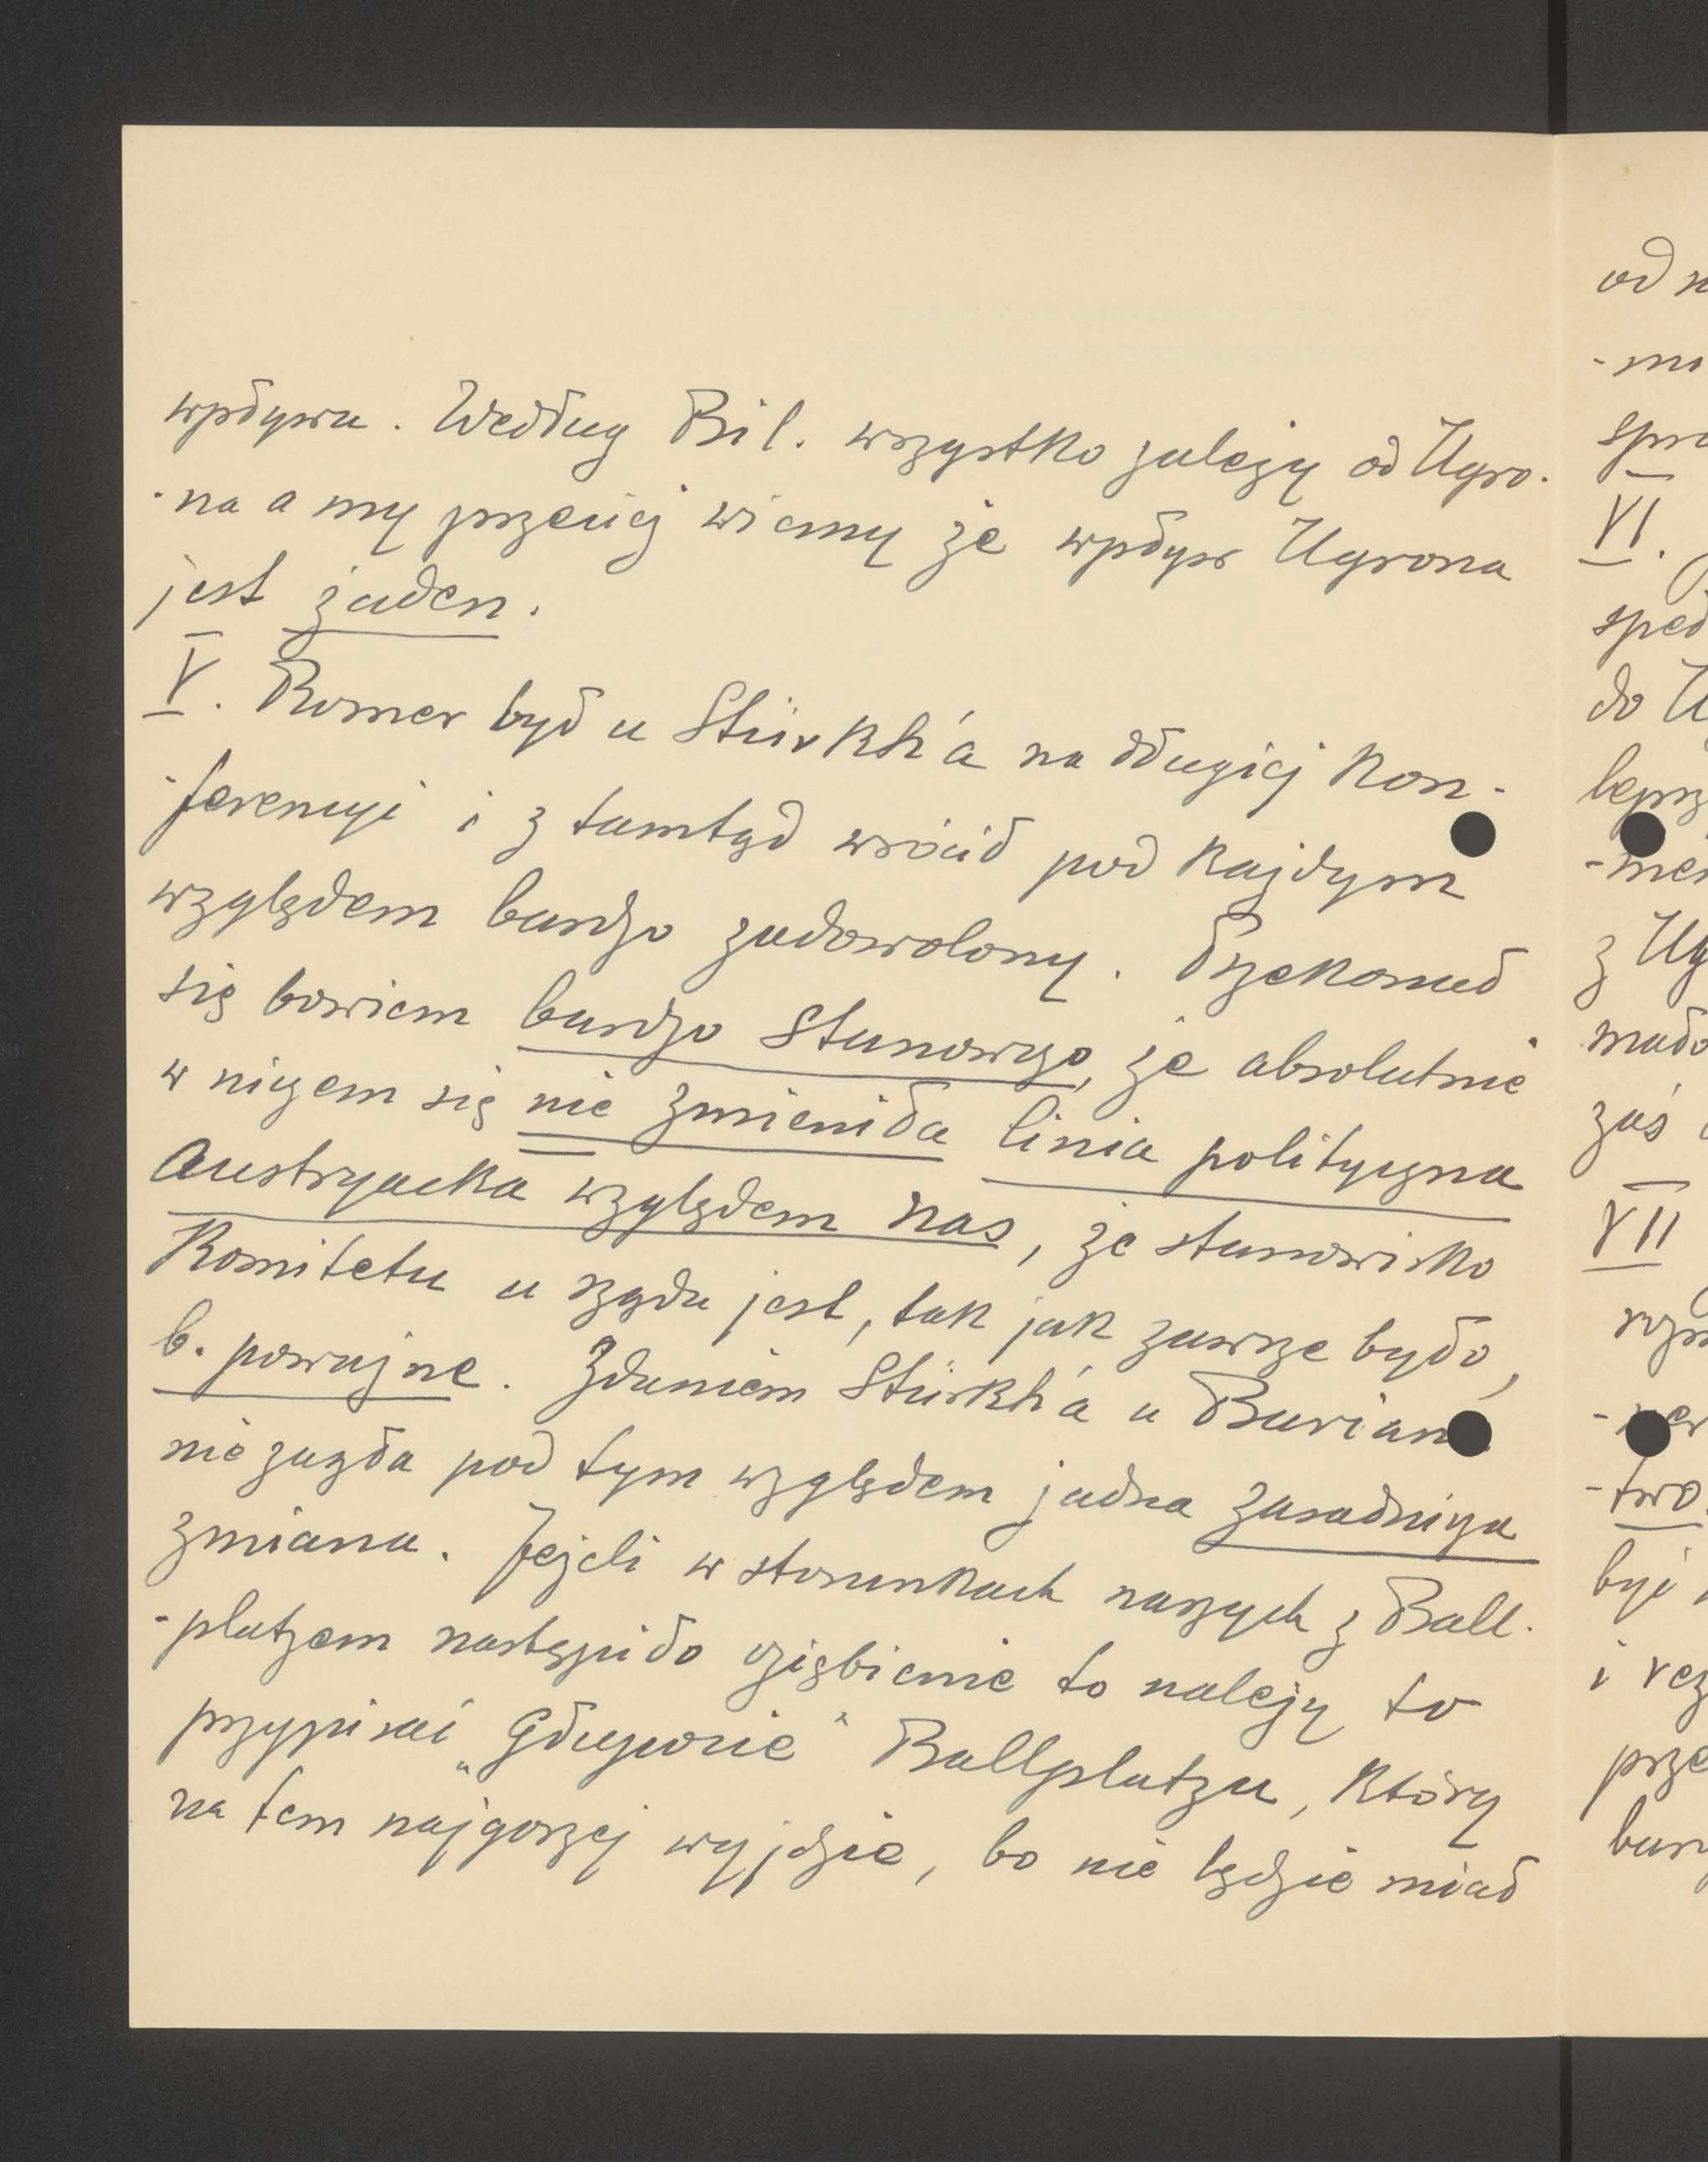 wpływu. Według Bil. wszystko zależy od Ugro-
-na a my przecież wiemy że wpływ Ugrona
jest żaden.
V. Romer był u Stürkh'a na długiej kon-
-ferencyi i z tamtąd wrócił pod każdym
względem bardzo zadowolony. Przekonał
się bowiem bardzo stanowczo, że absolutnie
w niczem się nie zmieniła linia polityczna
Austryacka względem nas, że stanowisko
Komitetu u rządu jest, tak jak zawsze było,
b. poważne. Zdaniem Stürkh'a u Burian
nie zaszła pod tym względem żadna zasadnicza
zmiana. Jeżeli w stosunkach naszych z Ball-
-platzem nastąpiło oziębienie to należy to
przypisać „Głupocie" Ballplatzu, który
na tem najgorzej wyjdzie, bo nie będzie miał
od
-mo
spra
VI.
do U
lepsz
z Ug
mało
zaś
VII
-two
być
i
prze